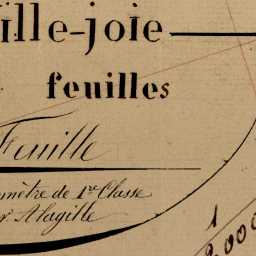 ille-joie
feuilles
Feuille
mètre de 1re Classe
r Alagille
1
2.000